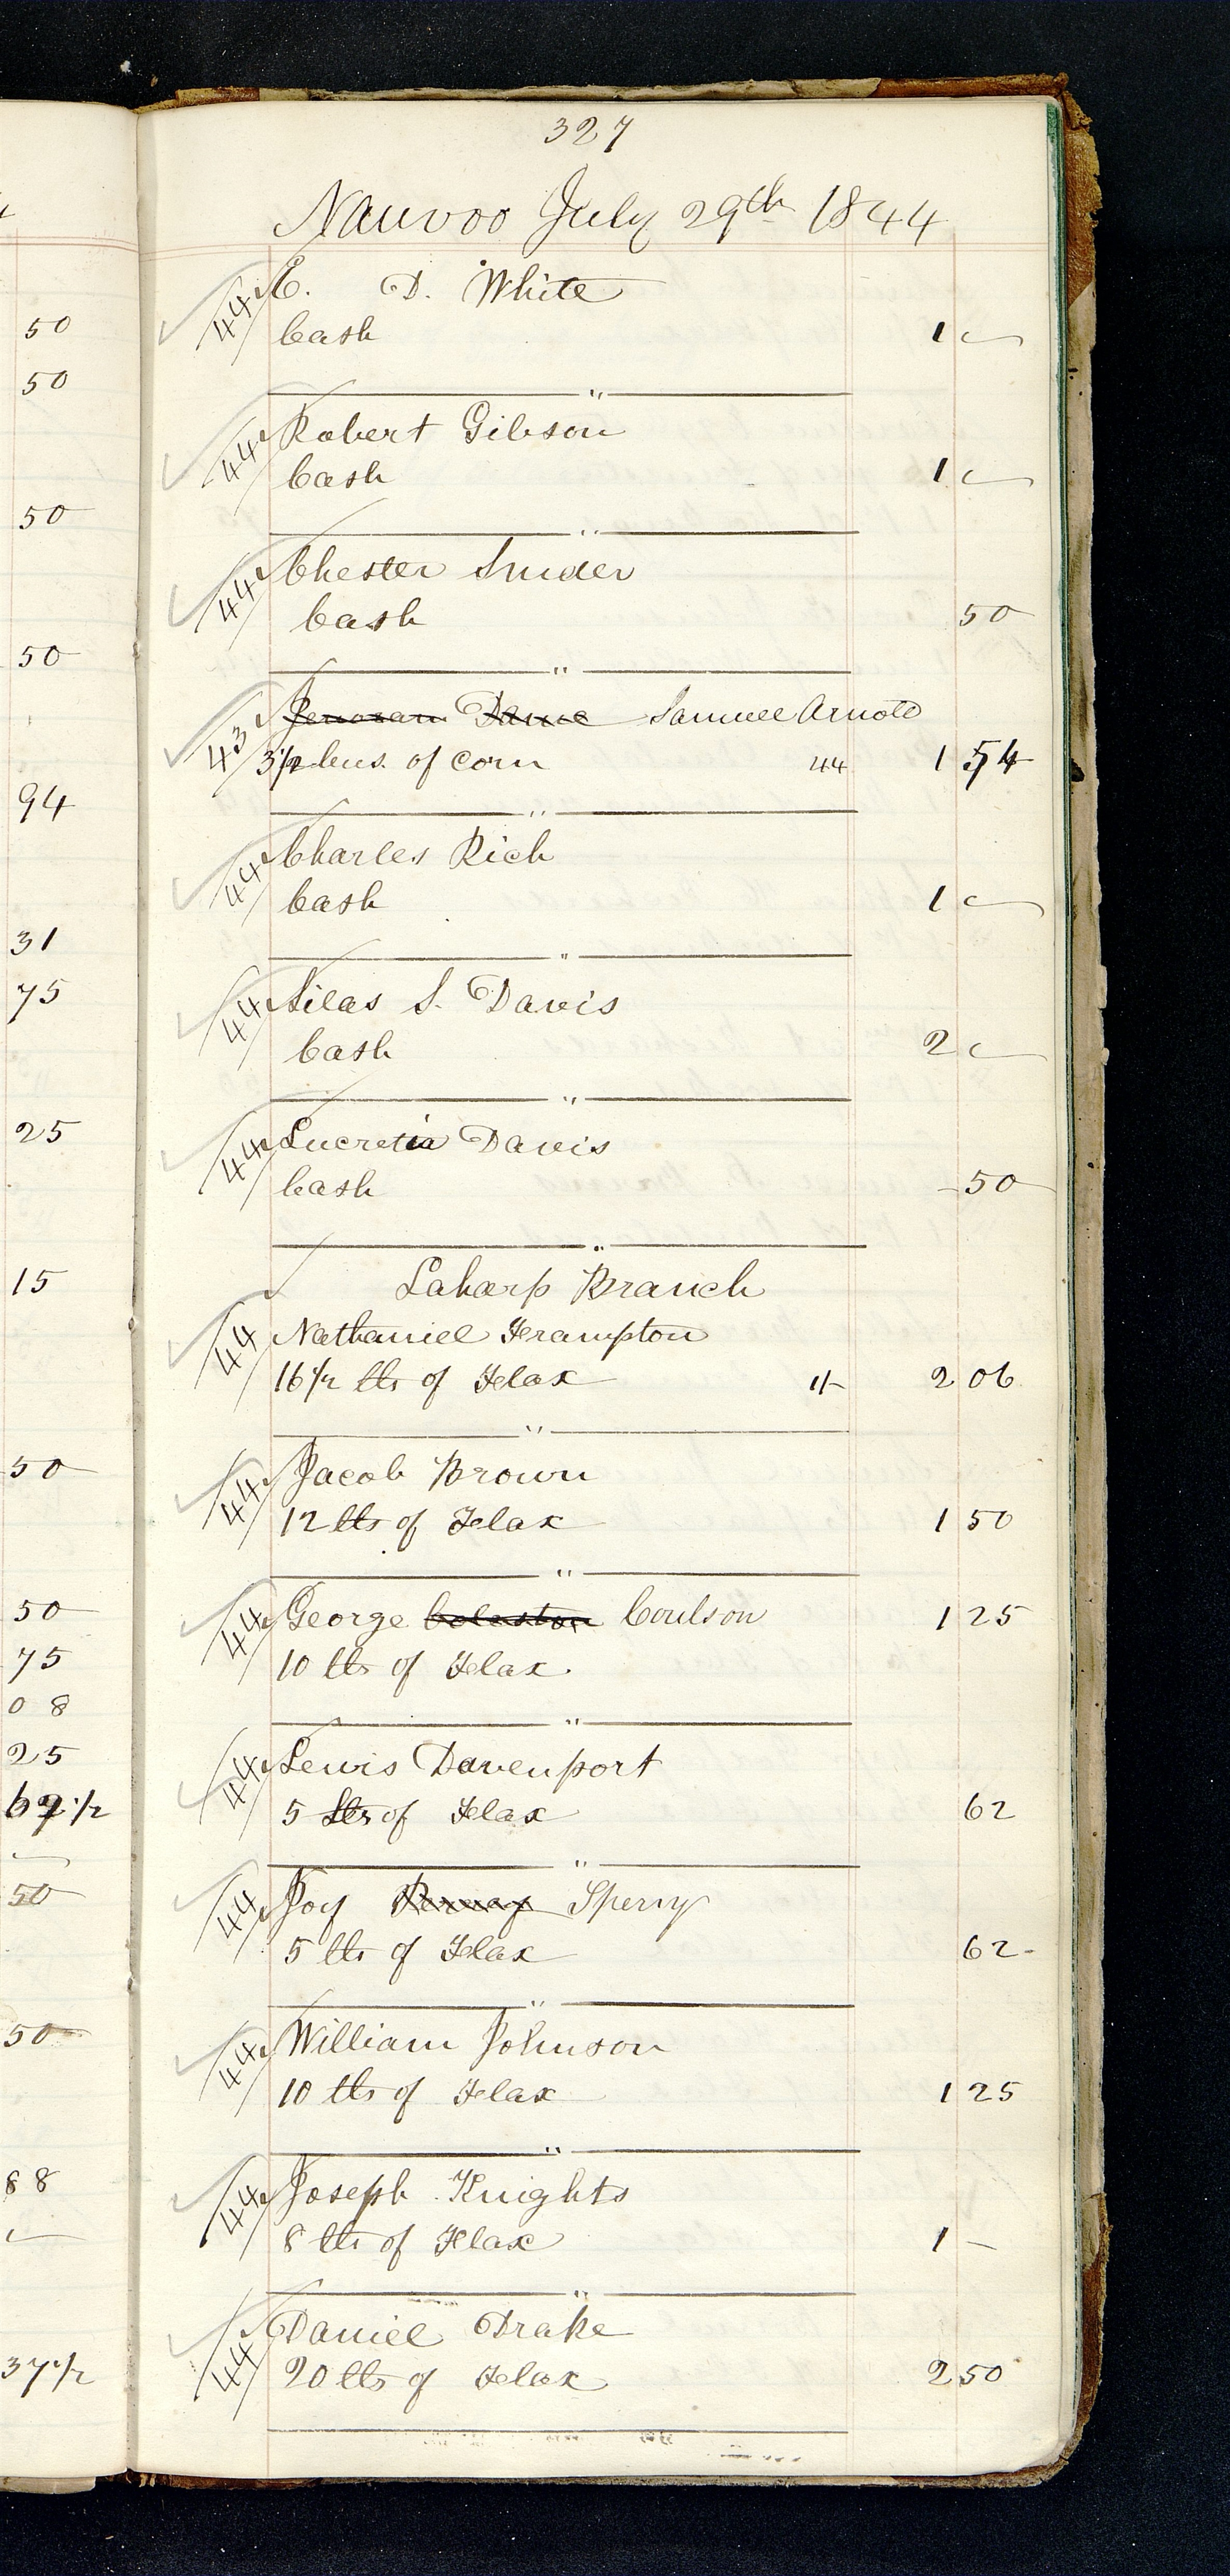 327
Nauvoo July 29th 1844
50
44 E. D. White
Cash 1 —
50
"
44 Robert Gibson
Cash 1 —
50
"
44 Chester Snider
Cash 50
50
"
43 Samuel Arnold
3 1/2 bus. of corn 44 1 54
94
"
44 Charles Rich
Cash 1 —
31
"
75
44 Silas S. Davis
Cash 2 —
"
25
44 Lucretia Davis
Cash 50
"
15
Laharp Branch
44 Nathaniel Frampton
16 1/2 lbs of Flax 1/- 2 06
"
50
44 Jacob Brown
12 lbs of Flax 1 50
"
50
44 George Coulson 1 25
75
10 lbs of Flax
08
"
25
44 Lewis Davenport
1/2
5 lbs of Flax 62
—
"
50
44 Joy Sperry
5 lbs of Flax 62
"
50
44 William Johnson
10 lbs of Flax 1 25
"
88
44 Joseph Knights
—
8 lbs of Flax 1 —
"
44 Daniel Drake
37 1/2
20 lbs of Flax 2 50